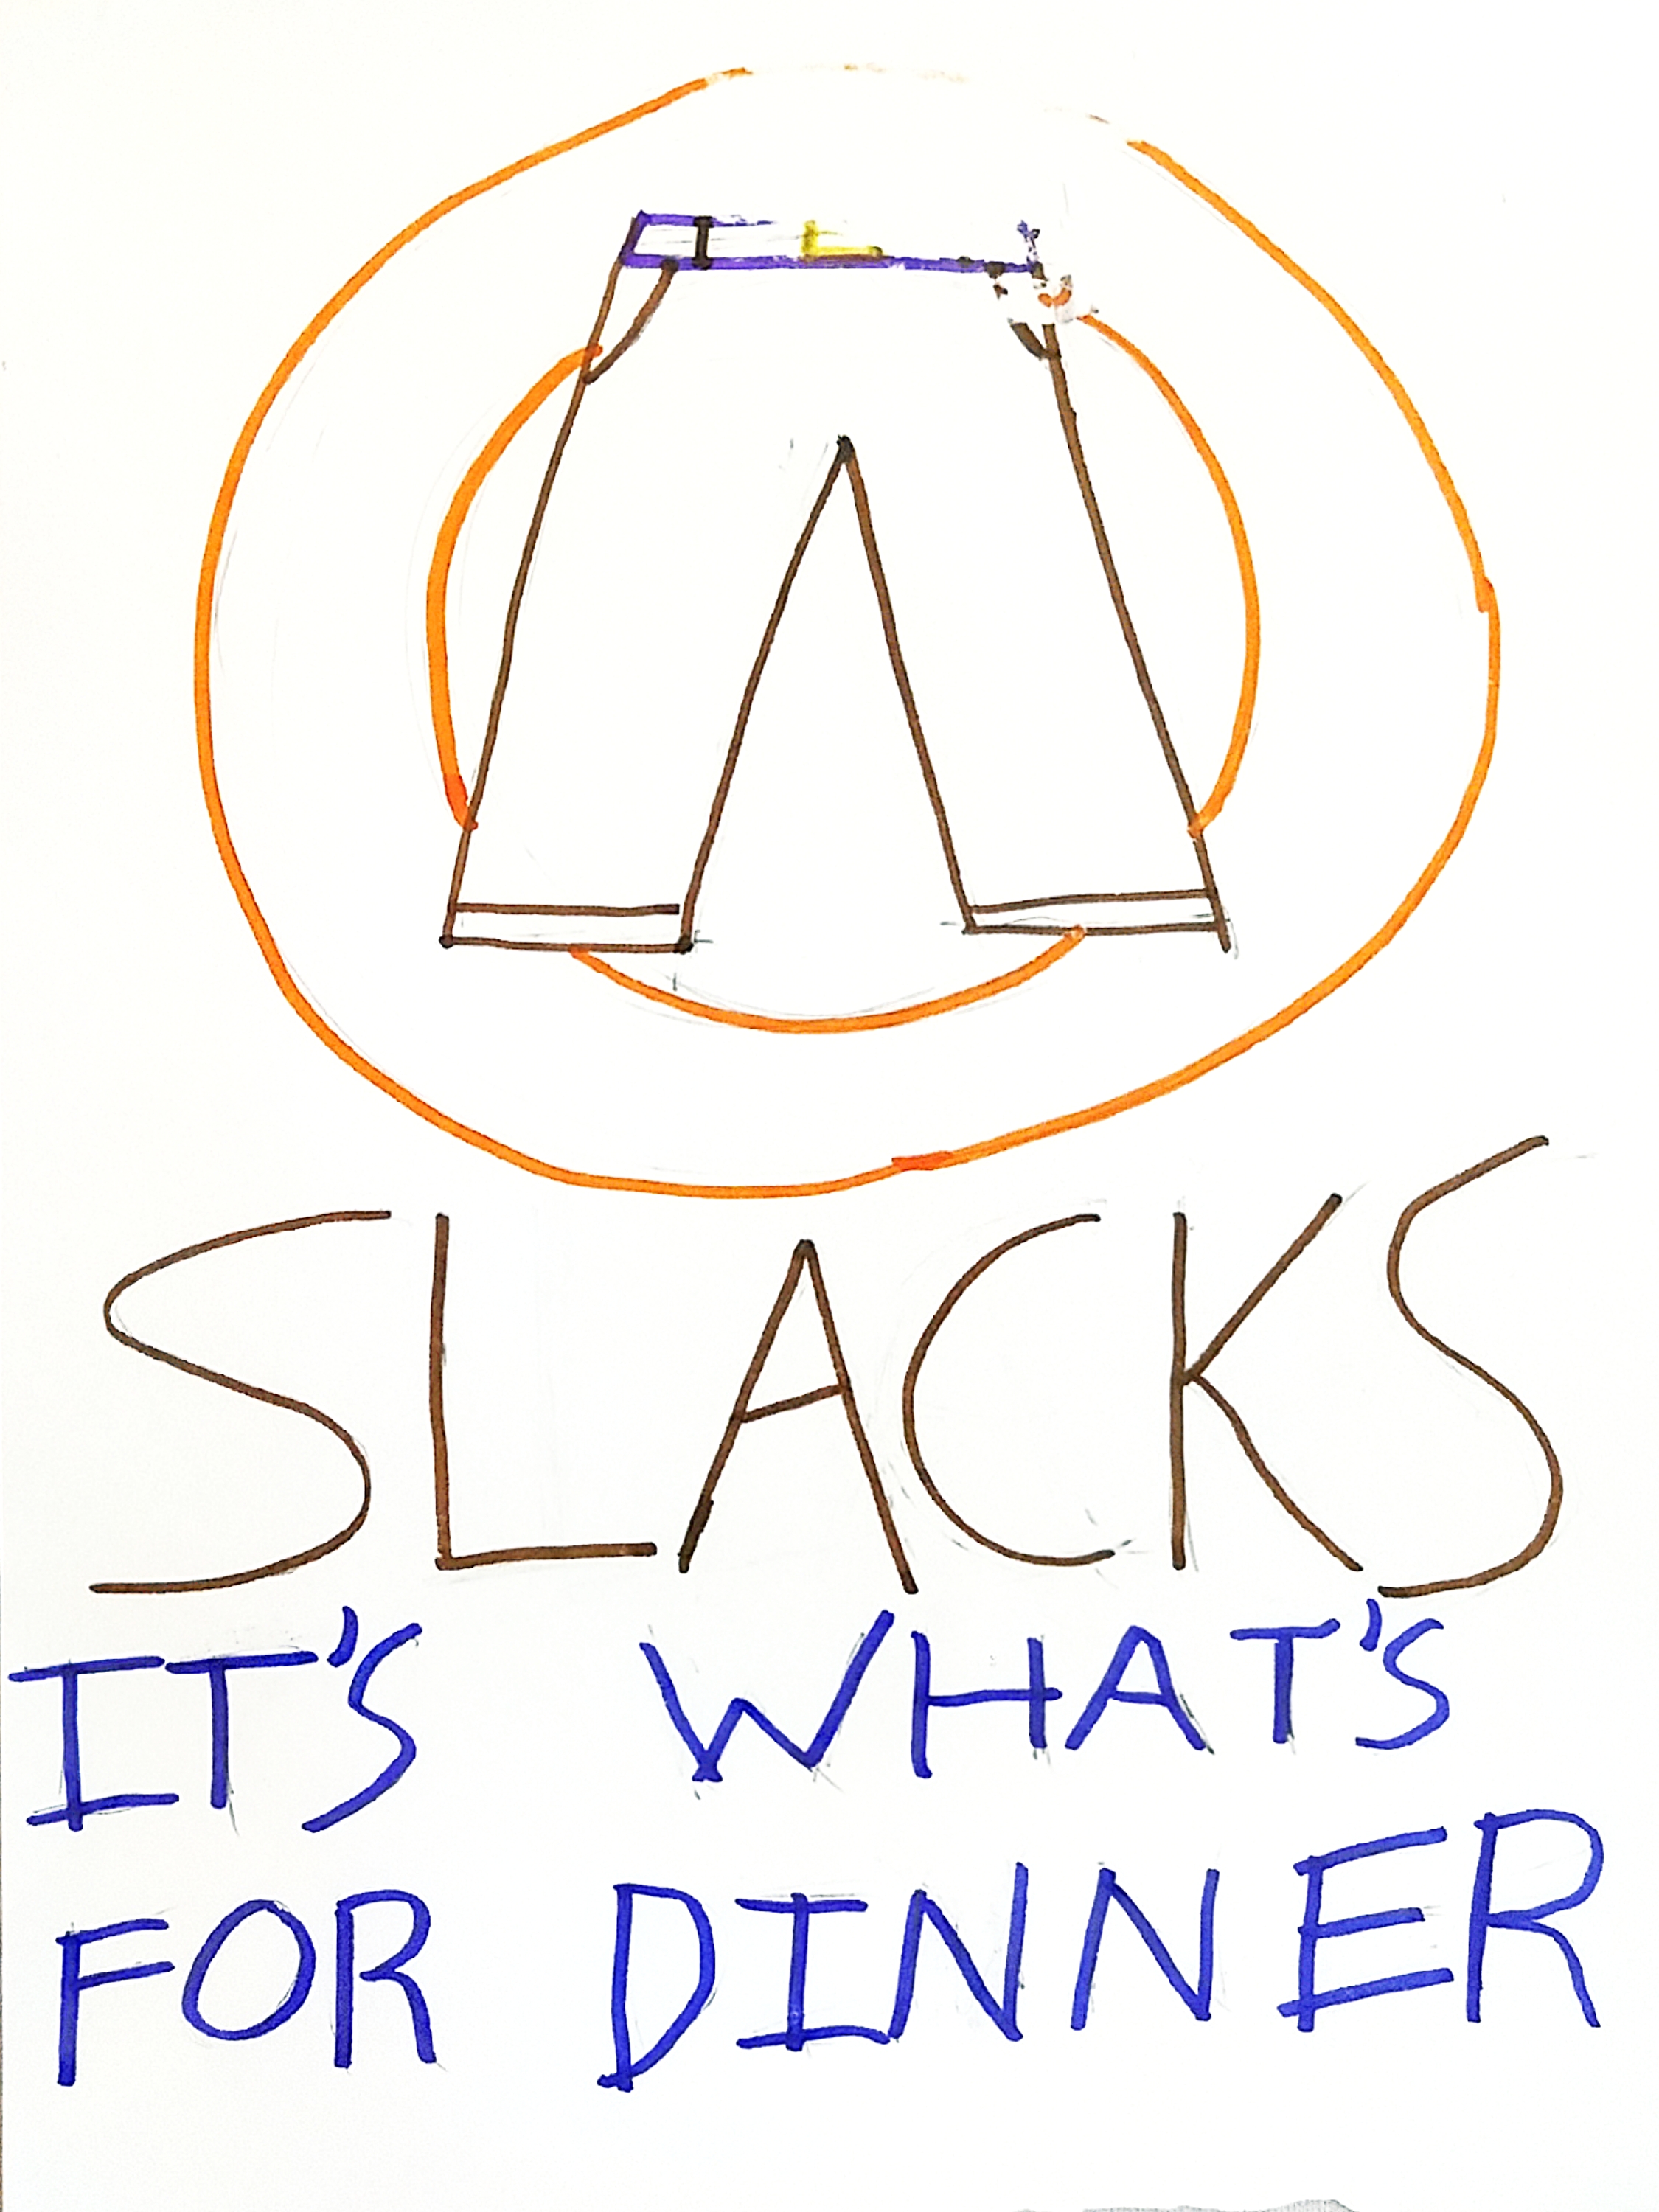 SLACKS
IT'S WHAT'S
FOR DINNER